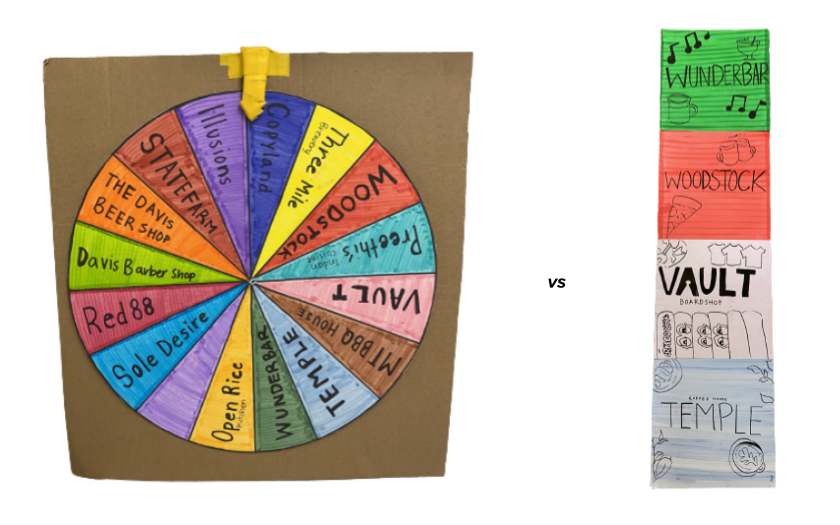 Copyland
Three Mile
Brewing
WOODSTOCK
Preethi's
Indian
Cuisine
VAULT
MT BBQ HOUSE
TEMPLE
WUNDERBAR
Open Rice
Kitchen
Sole Desire
Red 88
Davis Barber Shop
THE DAVIS
BEER SHOP
STATEFARM
Illusions
vs
WUNDERBAR
WOODSTOCK
VAULT
BOARDSHOP
COFFEE HOUSE
TEMPLE